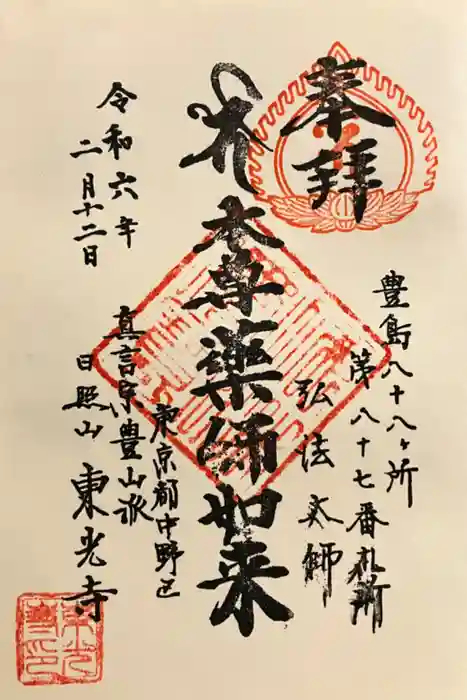 奉拝
豊島八十八ヶ所
第八十七番札所
弘法大師
本尊薬師如来
東京都中野区
令和六年
二月十二日
真言宗豊山派
日照山 東光寺